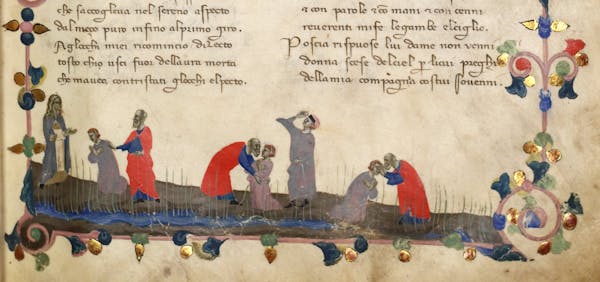 che saccoglieua nel sereno aspecto
dal meço puro infino al primo giro.
Aglochi miei ricomincio dilecto
tosto chio usci fuor dellaura morta
che mauea contristati glochi elpecto.
& con parole & co mani & con cenni
reuerenti mi fe le gambe elciglio.
Poscia rispuose lui da me non venni
donna scese delciel p licui preghi
della mia compagnia costui souenni.